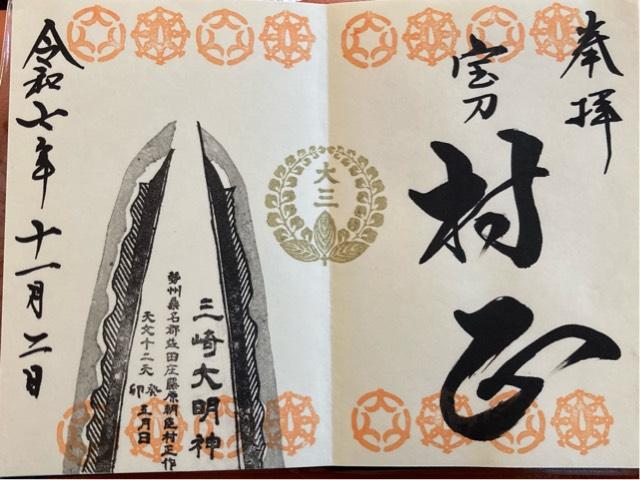 奉拝
宝刀
村正
大三
三崎大明神
勢州桑名郡益田庄藤原朝臣村正作
天文十二天癸卯五月日
令和七年十一月二日